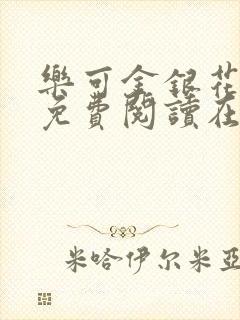 樂可金銀花
免費閱讀在
米哈伊尔米亚